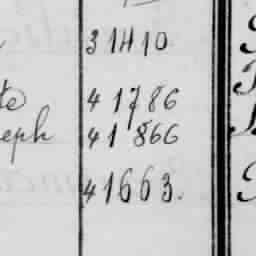 31410
te 41786
eph 41866
41663.